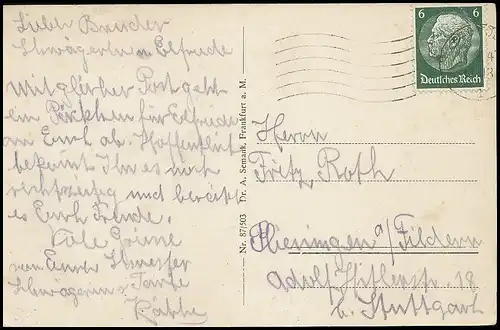 Lieber Bruder
Schwägerin u Elfriede
Mit gleicher Post geht
ein Päckchen für Elfriede
an Euch ab. Hoffentlich
bekommt Ihr es noch
rechtzeitig und bereitet
es Euch Freude.
Viele Grüsse
von Eurer Schwester
Schwägerin u Tante
Käthe
Nr. 87/503 Dr. A. Semank, Frankfurt a. M.
6 6
Deutsches Reich
Herrn
Fritz Roth
Plieningen a/Fildern
Adolf Hitlerstr 18
b. Stuttgart